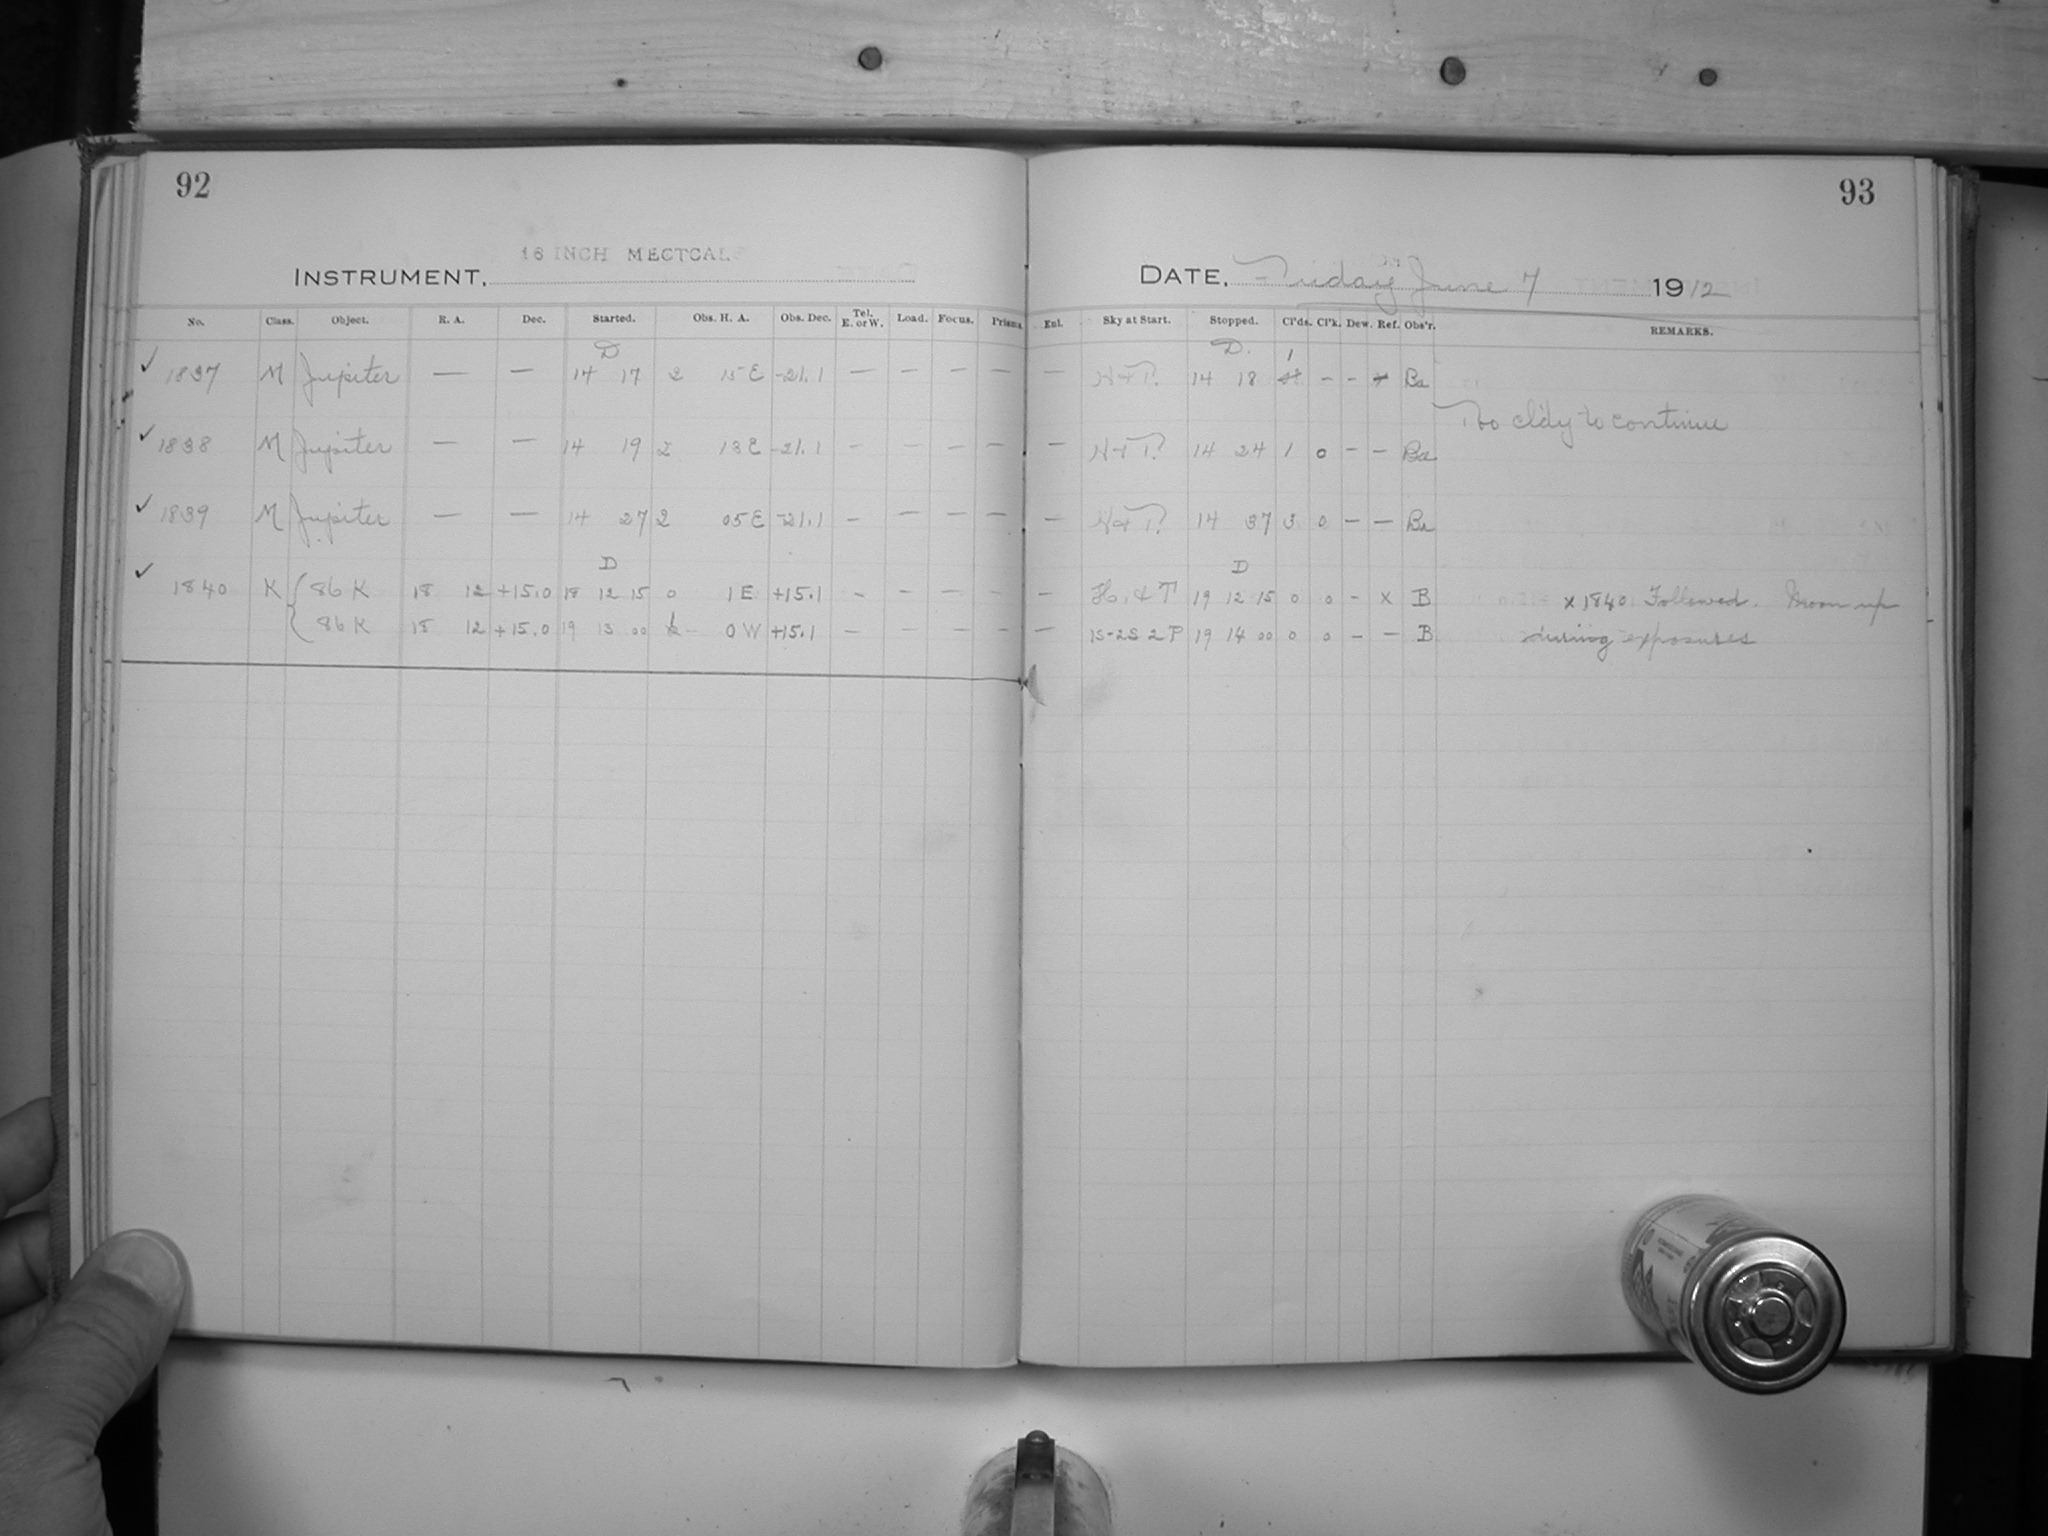 92
93
16 INCH METCALF
INSTRUMENT,
DATE, Friday June 7 1912
No. Class. Object. R. A. Dec. Started. Obs. H. A. Obs. Dec. Tel. E. or W. Load. Focus. Prisms. Enl. Sky at Start. Stopped. Cl'ds. Cl'k. Dew. Ref. Obs'r. REMARKS.
D D. 1
✓ 1837 M Jupiter — — 14 17 2 15 E -21.1 — — — — — H & T. 14 18 - - x Ba
Too cl'dy to continue
✓ 1838 M Jupiter — — 14 19 2 13 E -21.1 - - — — — H & T. 14 24 1 0 - - Ba
✓ 1839 M Jupiter — — 14 27 2 05 E -21.1 - — — — — H & T. 14 37 3 0 - - Ba
D D
✓ 1840 K { 86 K 18 12 +15.0 18 12 15 0 1 E +15.1 - - - - - H. & T 19 12 15 0 0 - x B x 1840 Followed. Moon up
86 K 18 12 +15.0 19 13 00 0 W +15.1 - - - - - 1S-2S 2P 19 14 00 0 0 - - B during exposures